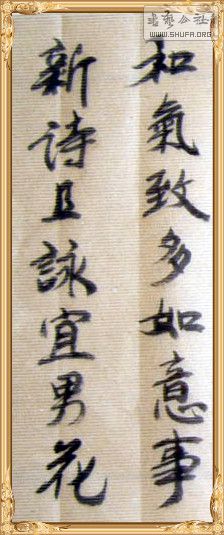 和氣致多如意事
新詩且詠宜男花
书艺公社
WWW.SHUFA.ORG